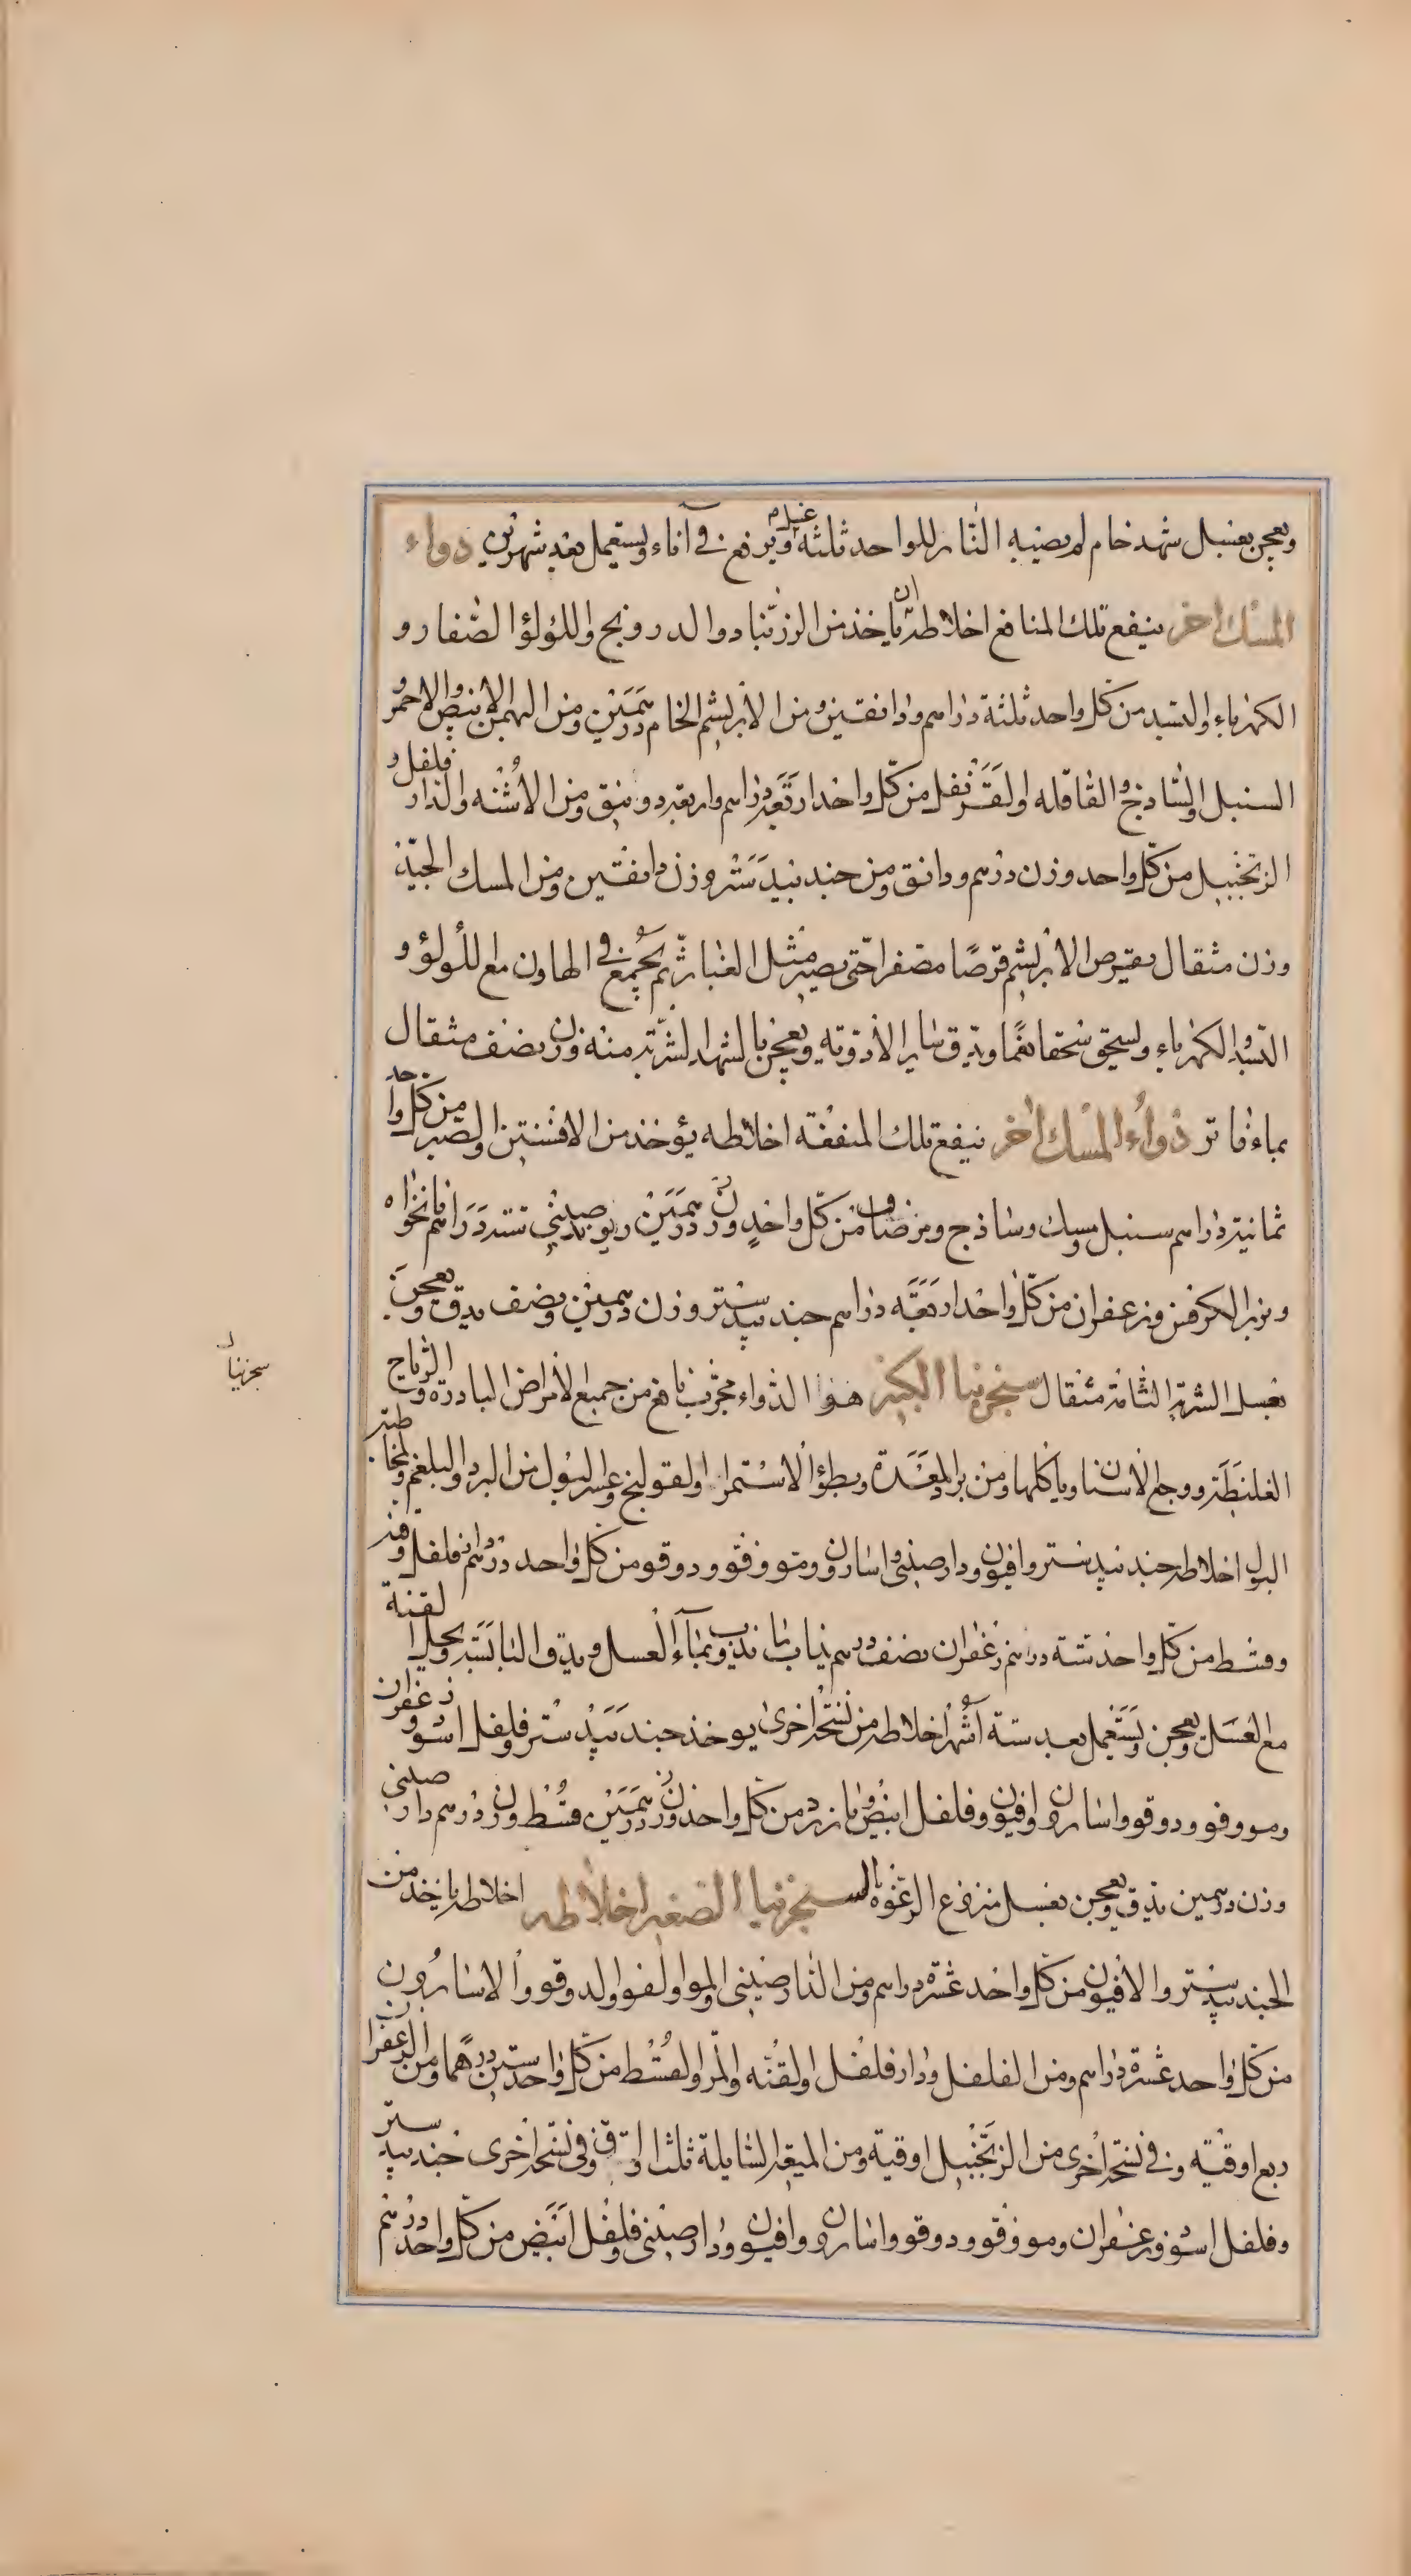 ويعجن بعسل شهد خام لم يصبه النار للواحد ثلثة ويرفع في آناء ويستعمل بعد شهرين دواء
المسك اخر ينفع تلك المنافع اخلاطه ان ياخذ من الزرنباد والدرونج واللؤلؤ الصغار و
الكهرباء والبسد من كل واحد ثلثة دراهم ودانقين ومن الابريشم الخام درهمين ومن البهمن الابيض والاحمر و
السنبل والساذج والقاقله والقرنفل من كل واحد اربعة دراهم واربعة دوانيق ومن الاشنه والدار فلفل و
الزنجبيل من كل واحد وزن درهم ودانق ومن جندبيدستر وزن دانقين ومن المسك الجيد
وزن مثقال يقرص الابريشم قرصا مصفرا حتى يصير مثل الغبار ثم يجمع في الهاون مع اللولؤ و
البسد والكهرباء ويسحق سحقا نعما ويدق ساير الادوية ويعجن بالشهد الشربة منه وزن نصف مثقال
بماء فاتر دواء المسك اخر ينفع تلك المنفعة اخلاطه يؤخذ من الافسنتين والصبر من كل واحد
ثمانية دراهم سنبل ومسك وساذج ومر صاف من كل واحد وزن درهمين ريوند صيني ستة دراهم نانخواه
وبزر الكرفس وزعفران من كل واحد اربعة دراهم جندبيدستر وزن درهمين ونصف يدق ويعجن
بعسل الشربة التامة مثقال سنجرنيا الكبير هذا الدواء مجرب نافع من جميع الامراض الباردة والرياح
الغليظة ووجع الاسنان وياكلها ومن برد المعدة وبطؤ الاستمراء والقولنج وعسر البول من البرد والبلغم ولمخاطبة
البول اخلاطه جندبيدستر وافيون ودارصيني واسارون ومو وفو ودوقو من كل واحد درهم فلفل وقنه
وقسط من كل واحد ستة دراهم زعفران نصف درهم يذاب بماء العسل ويدق اليابسة ويحل القنة
مع العسل ويعجن ويستعمل بعد ستة اشهر اخلاطه من نسخة اخرى يوخذ جندبيدستر وفلفل اسود وزعفران
ومو وفو ودوقو واسارون وافيون وفلفل ابيض وبازرد من كل واحد وزن درهمين قسط وزن درهم دارصيني
وزن درهمين يدق ويعجن بعسل منزوع الرغوة السنجرنيا الصغير اخلاطه اخلاطه ياخذ من
الجندبيدستر والافيون من كل واحد عشرة دراهم ومن الدارصيني والمو والفو والدوقو والاسارون
من كل واحد عشرة دراهم ومن الفلفل ودارفلفل والقنه والمر والقسط من كل واحد ستين درهما ومن الزعفران
ربع اوقيته وفي نسخة اخرى من الزنجبيل اوقية ومن الميعة السايلة ثلث اواق وفي نسخة اخرى جندبيدستر
وفلفل اسود وزعفران ومو وفو ودوقو واسارون وافيون ودارصيني وفلفل ابيض من كل واحد درهم
سجزنيا